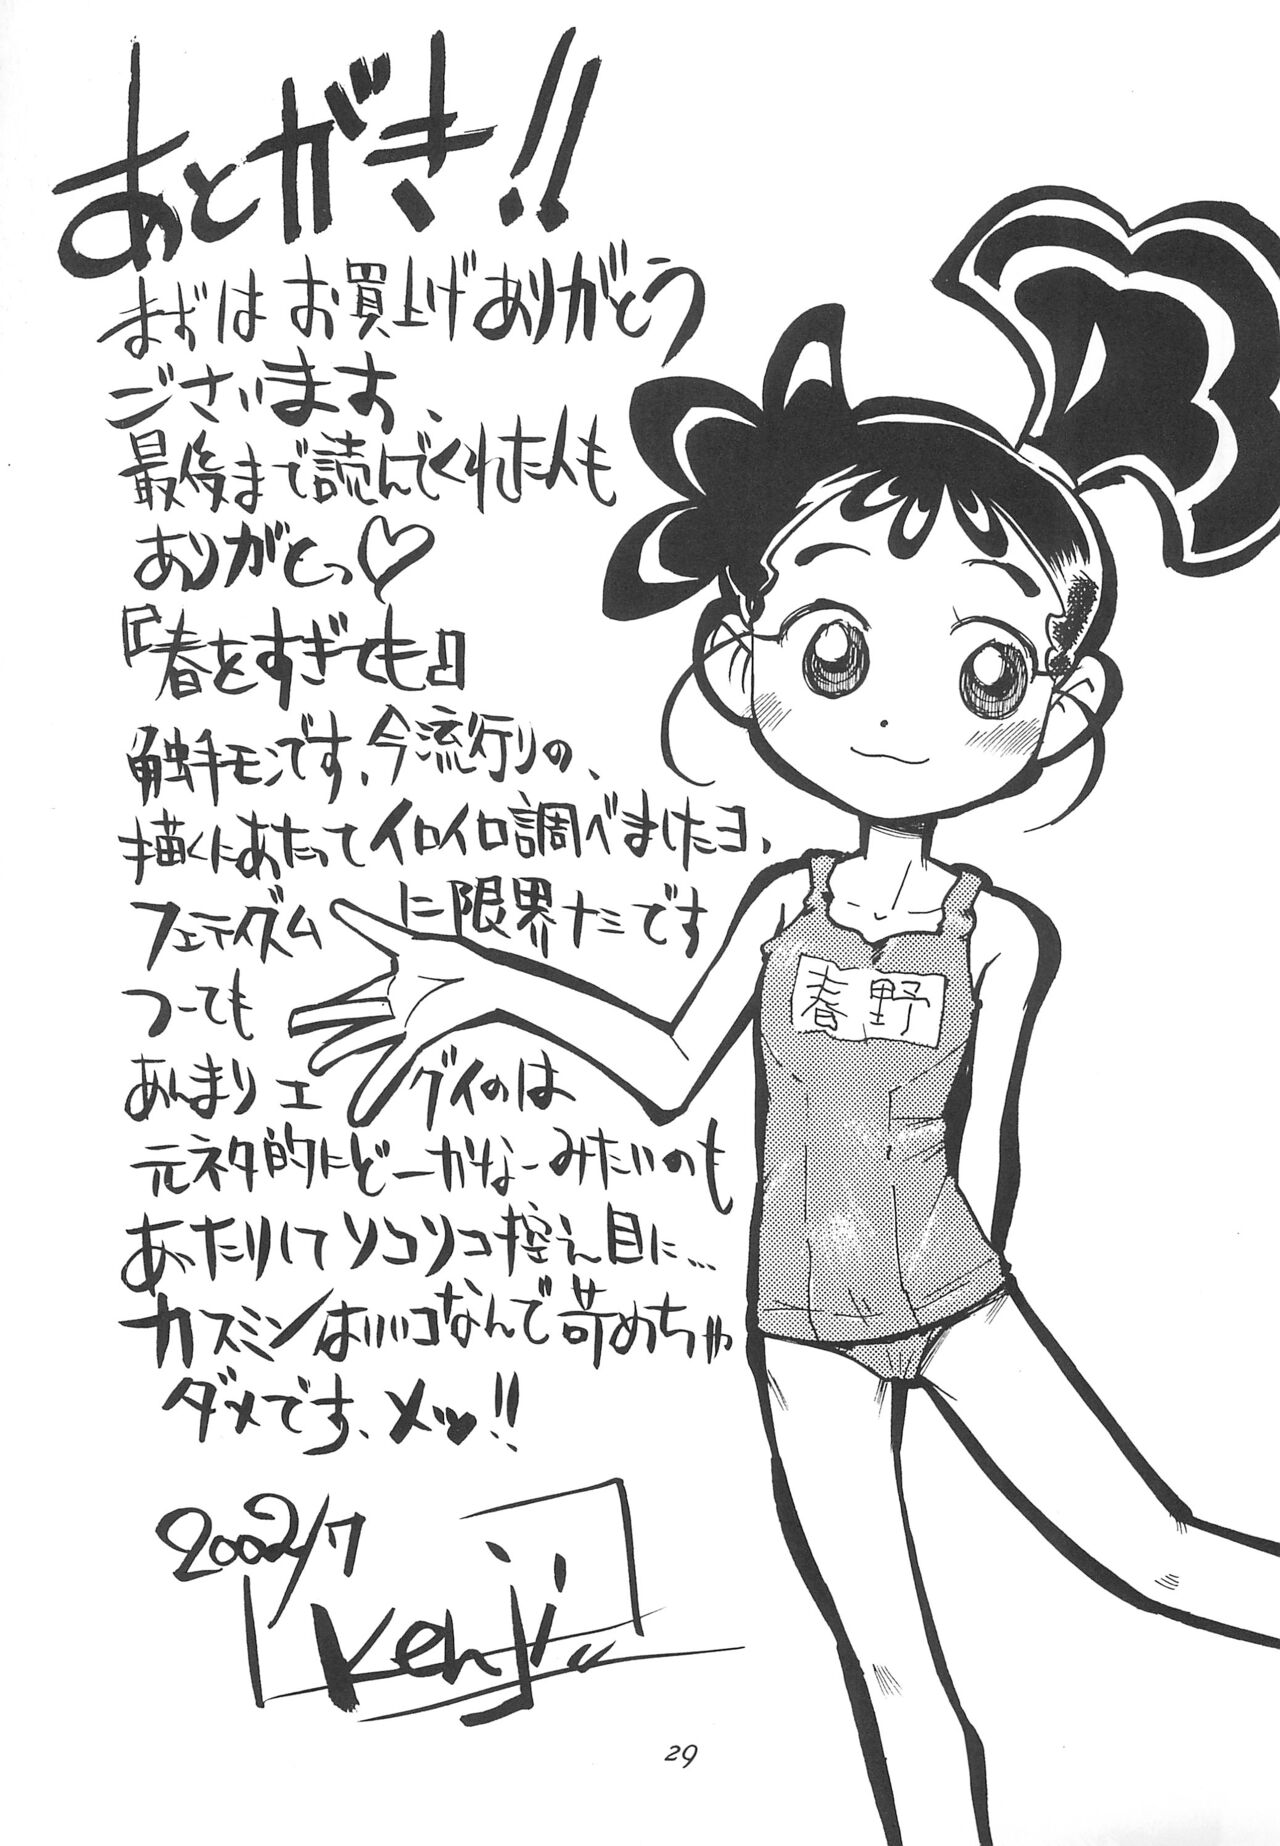 あとがき!!
まずはお買上げありがとう
ございます、
最後まで読んでくれた人も
ありがとっ♡
『春をすぎても』
触手モンです、今流行りの、
描くにあたってイロイロ調べましたヨ、
フェティズムに限界ナシです
つーても
あんまりエグイのは
元ネタ的にどーかなーみたいのも
あったりしてソコソコ控え目に…
カスミンはイイコなんで苛めちゃ
ダメです、メッ!!
春野
2002/7
Kenji
29